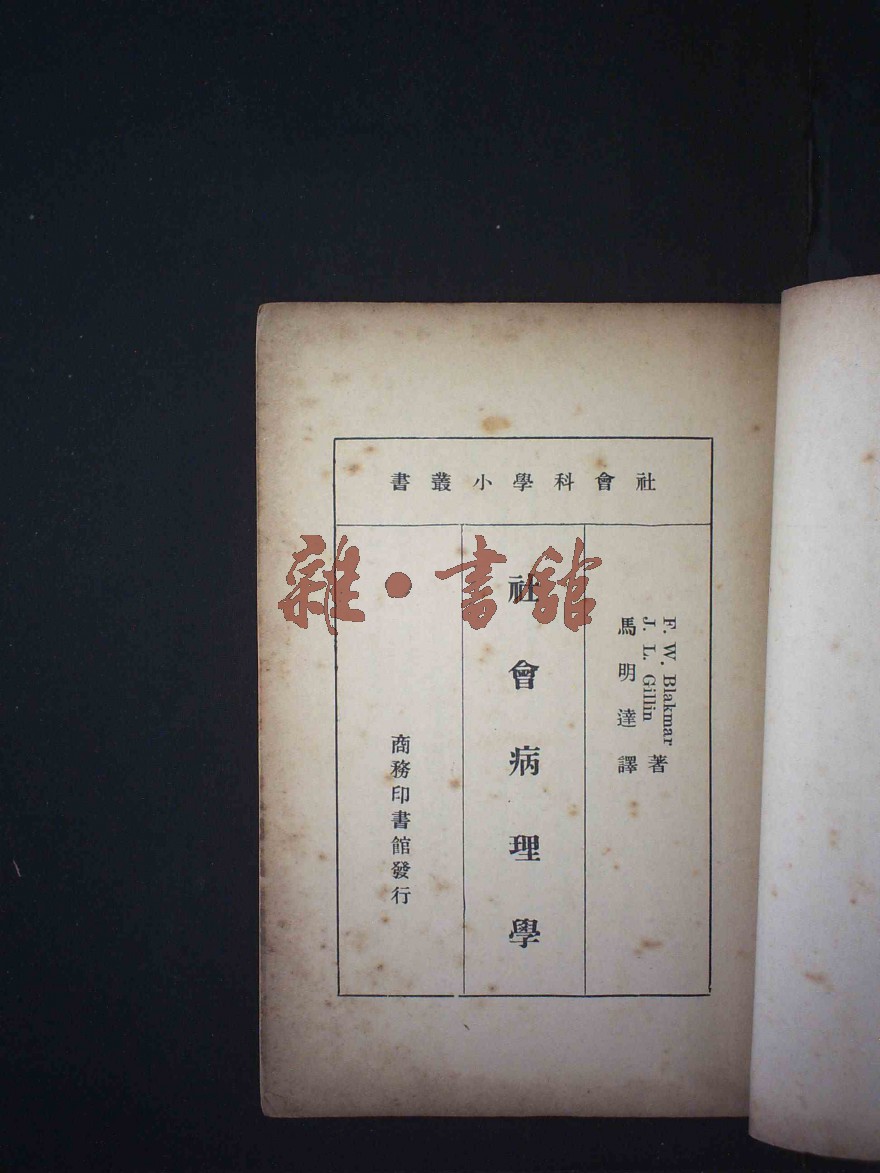 社會科學小叢書
F. W. Blakmar
J. L. Gillin 著
馬明達譯
社會病理學
商務印書館發行
雜·書館